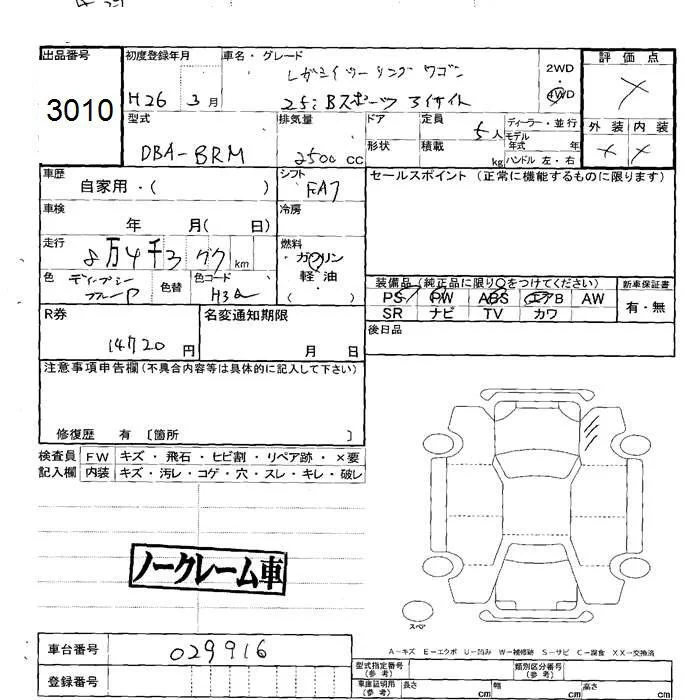 出品番号
3010
初度登録年月
H26 3月
車名・グレード
レガシィツーリングワゴン
2.5i Bスポーツ アイサイト
2WD
4WD
評価点
X
外装 内装
X X
型式
DBA-BRM
排気量
2500 cc
ドア
形状
定員
5人
積載
kg
ディーラー・並行
モデル
年式 年
ハンドル 左・右
車歴
自家用・( )
シフト
FA7
セールスポイント (正常に機能するものに限ります)
車検
年 月( 日)
冷房
走行
8万4千3 km
燃料
ガソリン
軽・油
( )
色
色替
色コード
装備品(純正品に限り○をつけてください)
新車保証書
PS PW ABS エアB AW
有・無
SR ナビ TV カワ
R券
14720円
名変通知期限
月 日
後日品
注意事項申告欄(不具合内容等は具体的に記入して下さい)
修復歴 有 〔箇所 〕
検査員 FW キズ・飛石・ヒビ割・リペア跡・×要
記入欄 内装 キズ・汚レ・コゲ・穴・スレ・キレ・破レ
ノークレーム車
スペア
A-キズ E-エクボ U-凹み W-補修跡 S-サビ C-腐食 XX-交換済
車台番号
029916
登録番号
型式指定番号
(参考)
類別区分番号
(参考)
車庫証明用
(参考)
長さ cm
幅 cm
高さ cm